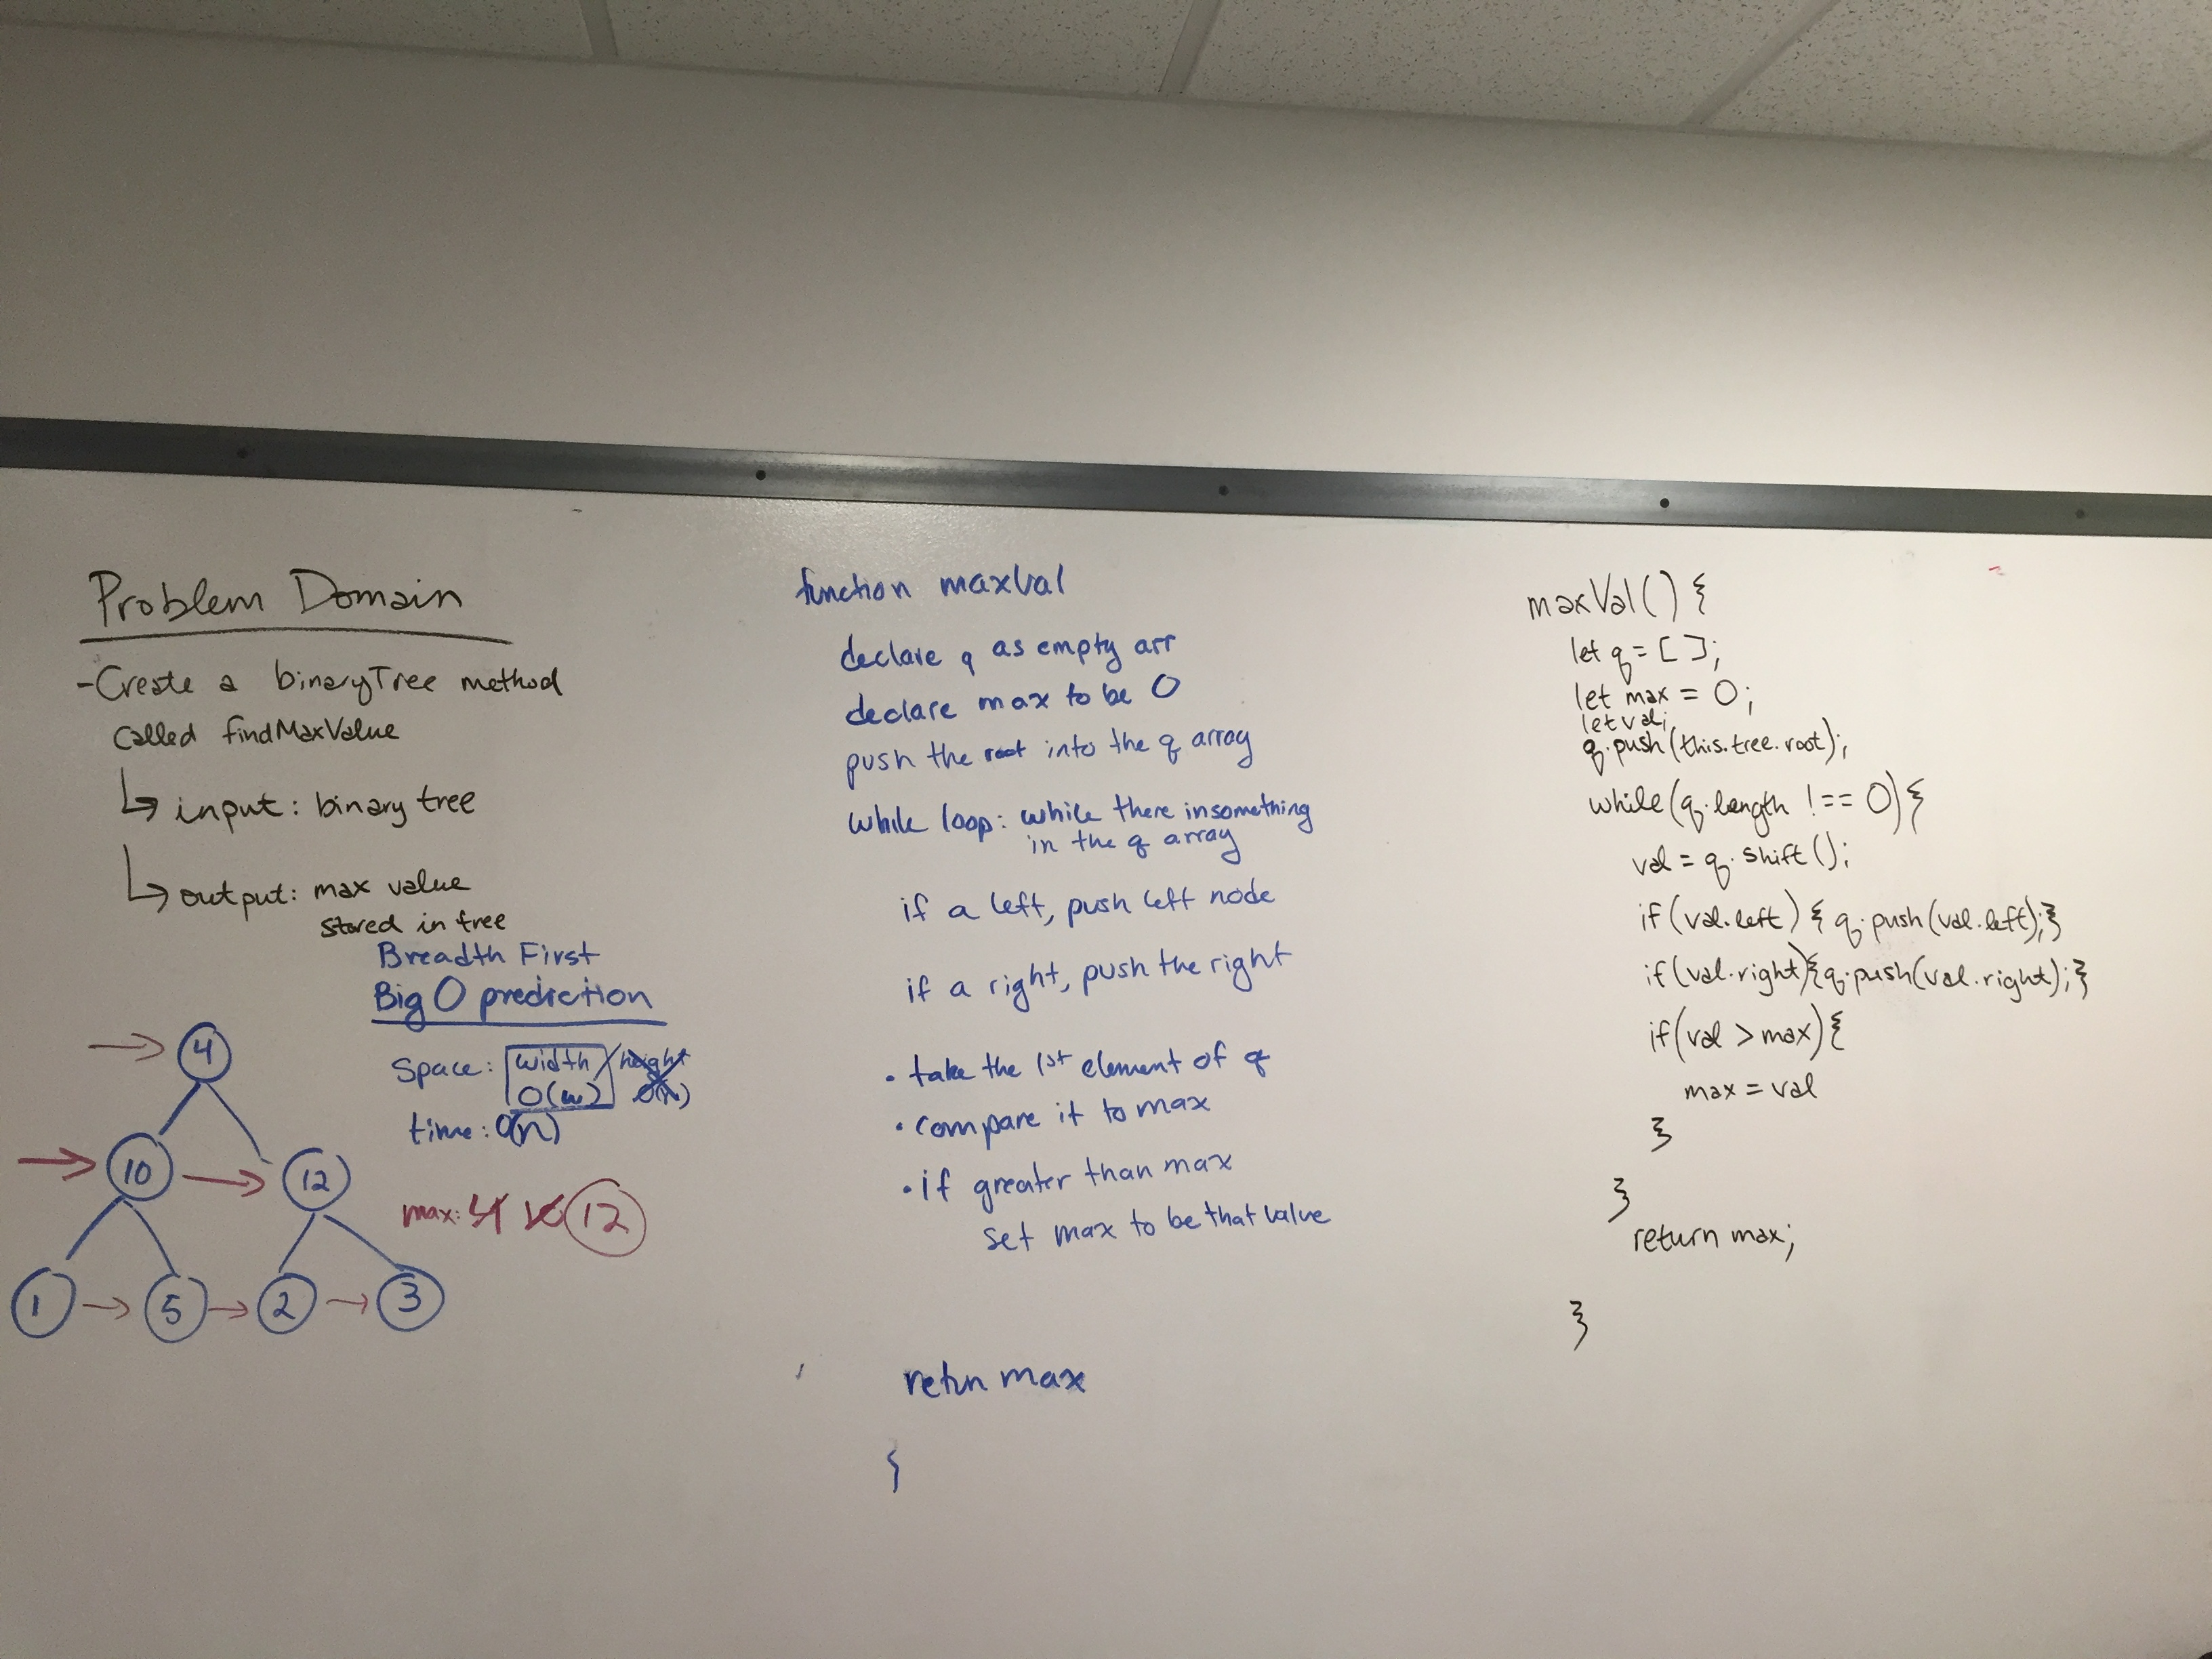 Problem Domain
-Create a binaryTree method
called findMaxValue
input: binary tree
output: max value
stored in tree
Breadth First
Big O prediction
Space: width/height
O(w)
time: O(n)
4
10
12
1
5
2
3
max: 4 10 12
function maxVal
declare q as empty arr
declare max to be 0
push the root into the q array
while loop: while there in something
in the q array
if a left, push left node
if a right, push the right
• take the 1st element of q
• compare it to max
• if greater than max
set max to be that value
retun max
}
maxVal() {
let q = [ ];
let max = 0;
let val;
q.push(this.tree.root);
while(q.length !== 0){
val = q.shift();
if(val.left) { q.push(val.left);}
if(val.right){q.push(val.right);}
if(val > max){
max = val
}
}
return max;
}